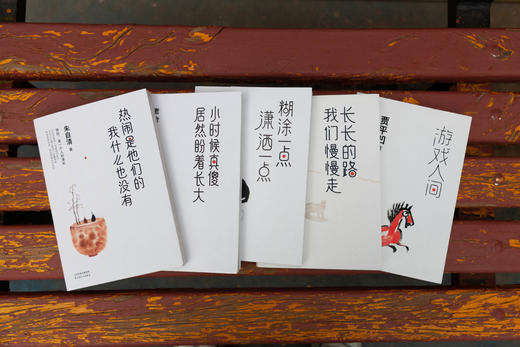 热闹是他们的
我什么也没有
朱自清 著
小时候真傻
居然盼着长大
糊涂一点
潇洒一点
长长的路
我们慢慢走
游戏人间
贾平凹